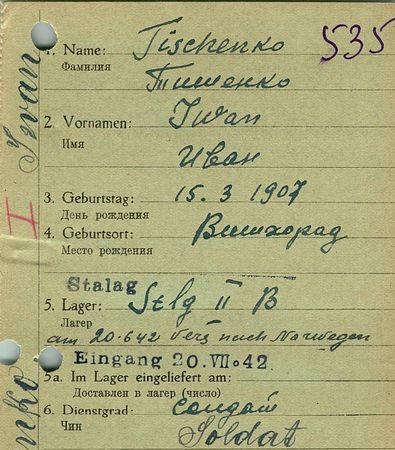 535
1. Name: Tischenko
Фамилия
Тишенко
2. Vornamen: Iwan
Имя
Иван
3. Geburtstag: 15.3 1907
День рождения
4. Geburtsort: Вишхорад
Место рождения
Stalag
5. Lager: Stlg II B
Лагер
am 20.642 Vers nach Norwegen
Eingang 20.VII.42
5a. Im Lager eingeliefert am:
Доставлен в лагер (число)
6. Dienstgrad: солдат
Чин
Soldat
Iwan
I
nko